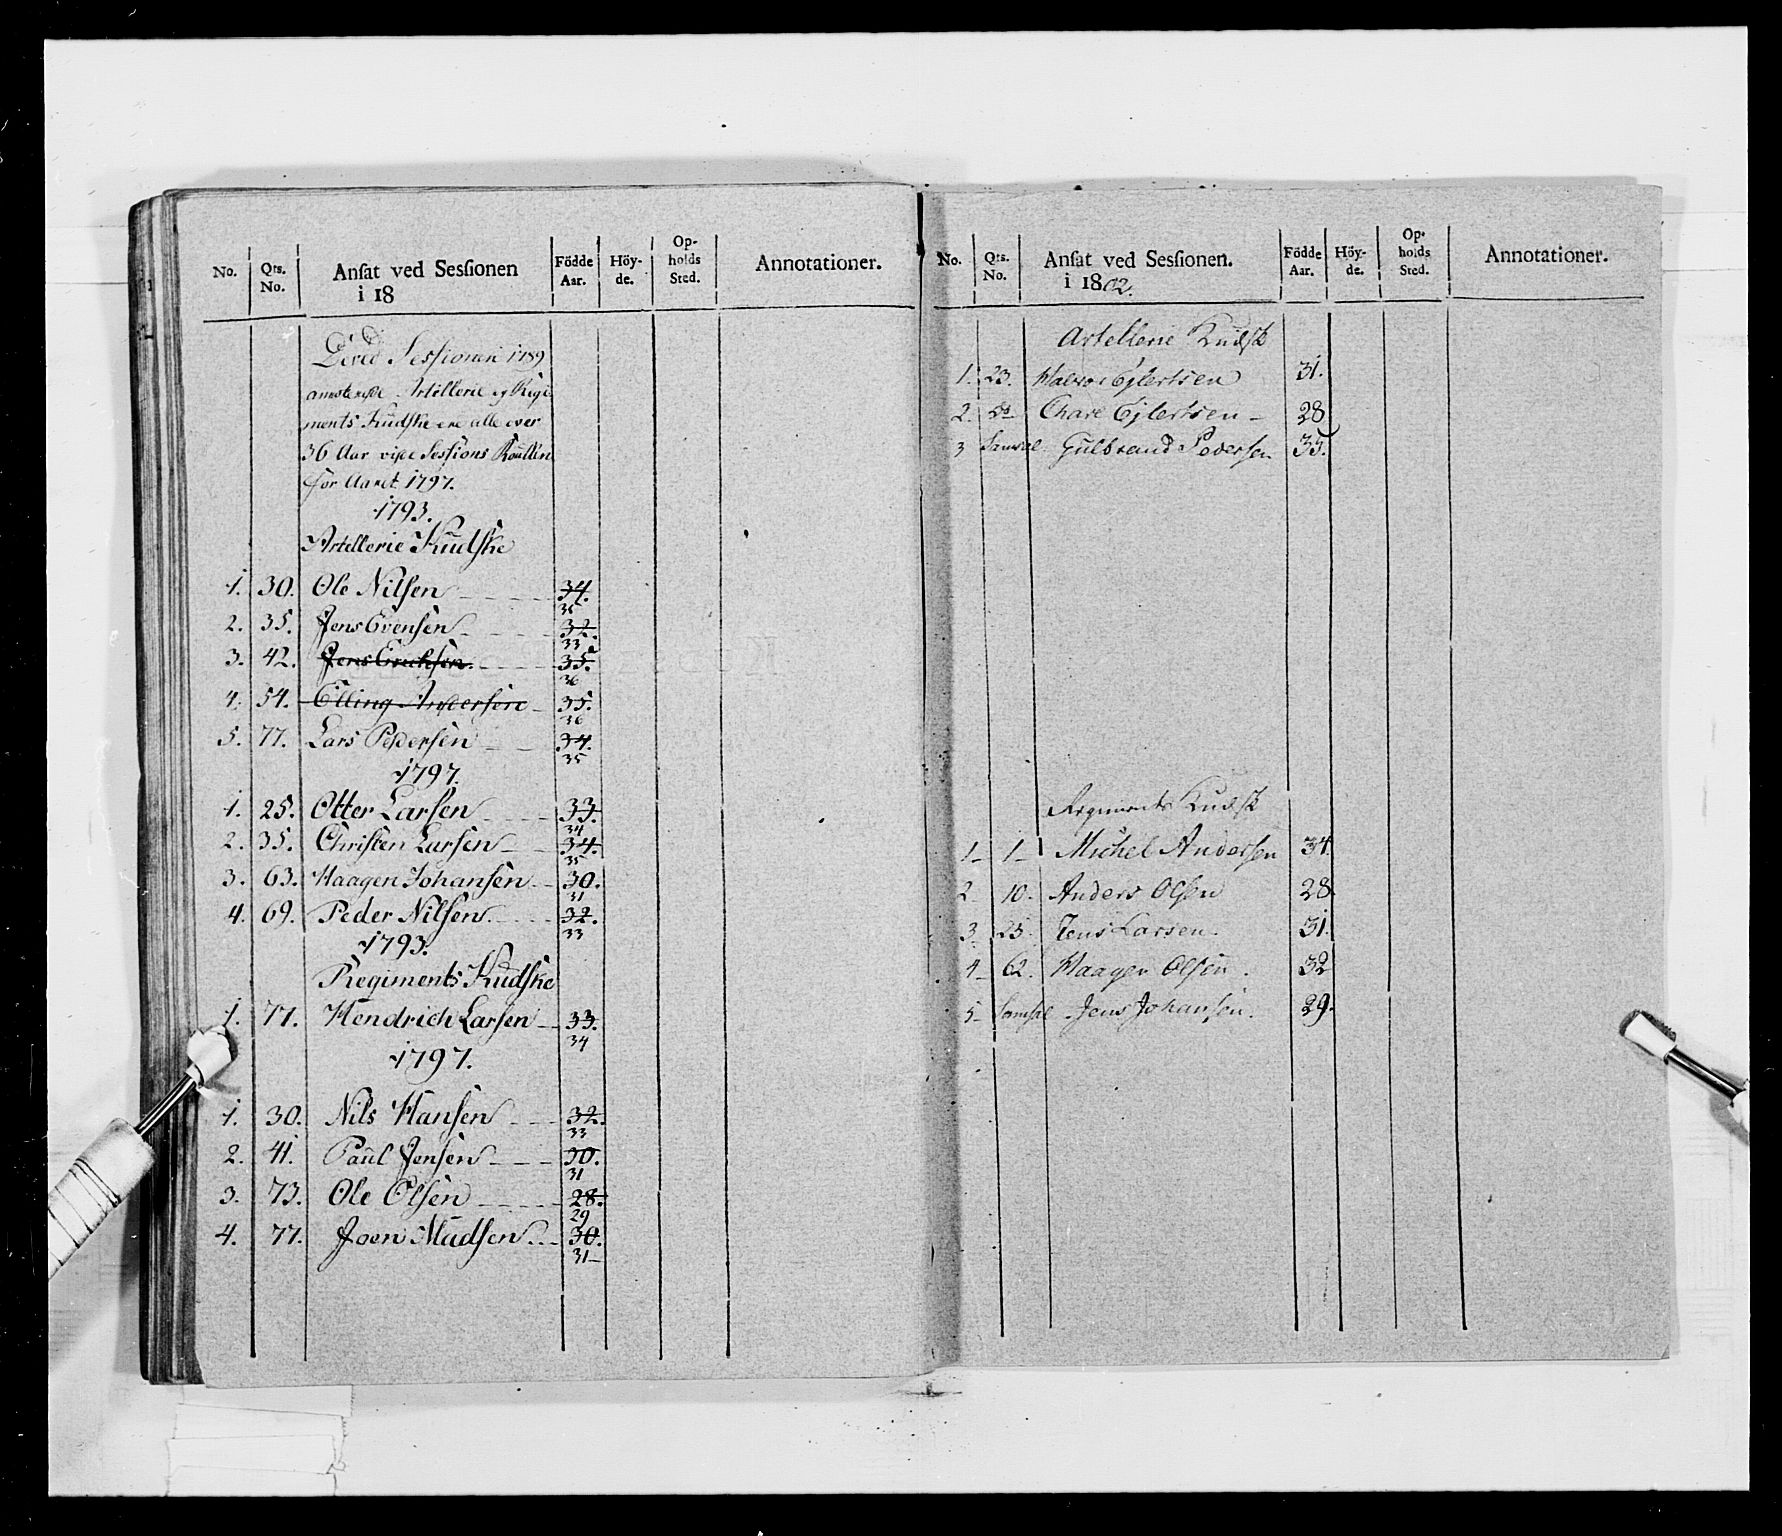 No. Qts. No. Ansat ved Sessionen i 18 Födde Aar. Höy-de. Op-holds Sted. Annotationer.
Sessionen 1789
Artillerie og Regi
ments Kudske ere alle over
36 Aar vise Sessions Roullen
for Aaret 1797.
1793.
Artillerie Kudske
1. 30. Ole Nilsen 34. 35
2. 35. Jens Evensen 32. 33
3. 42. Jens Erichsen 35. 36
4. 54. Elling Andersen 35. 36
5. 77. Lars Pedersen 34. 35
1797.
1. 25. Otter Larsen 33. 34
2. 35. Christen Larsen 34. 35
3. 63. Haagen Johansen 30. 31
4. 69. Peder Nilsen 32. 33
1793.
Regiments Kudske
1. 77. Hendrich Larsen 33. 34
1797.
1. 30. Nils Hansen 32. 33
2. 41. Paul Jensen 30. 31
3. 73. Ole Olsen 28. 29
4. 77. Joen Madsen 30. 31
No. Qts. No. Ansat ved Sessionen. i 1802. Födde Aar. Höy-de. Op-holds Sted. Annotationer.
Artellerie Kudsk
1. 23. Halvor Ejlertsen 31.
2. do Ejlertsen 28
3 Gulbrand Pedersen 35.
Regiments Kudsk
1 1 Michel Andersen 34
2 10. Anders Olsen 28
3. 25. Jens Larsen. 31.
4 62. Haagen Olsen. 32
5 Jens Johansen. 29.